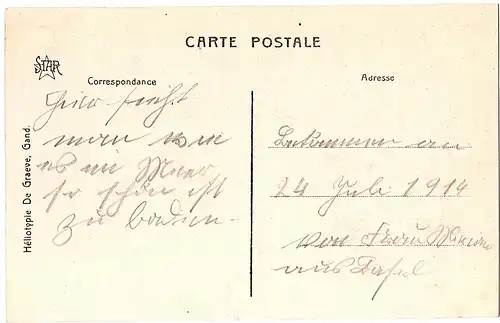 CARTE POSTALE
STAR
Correspondance
Adresse
Hier sieht
man wie
es im Meer
so schön ist
zu baden.
Bekommen am
24 Juli 1914
von Frau
aus Basel
Héliotypie De Graeve, Gand.